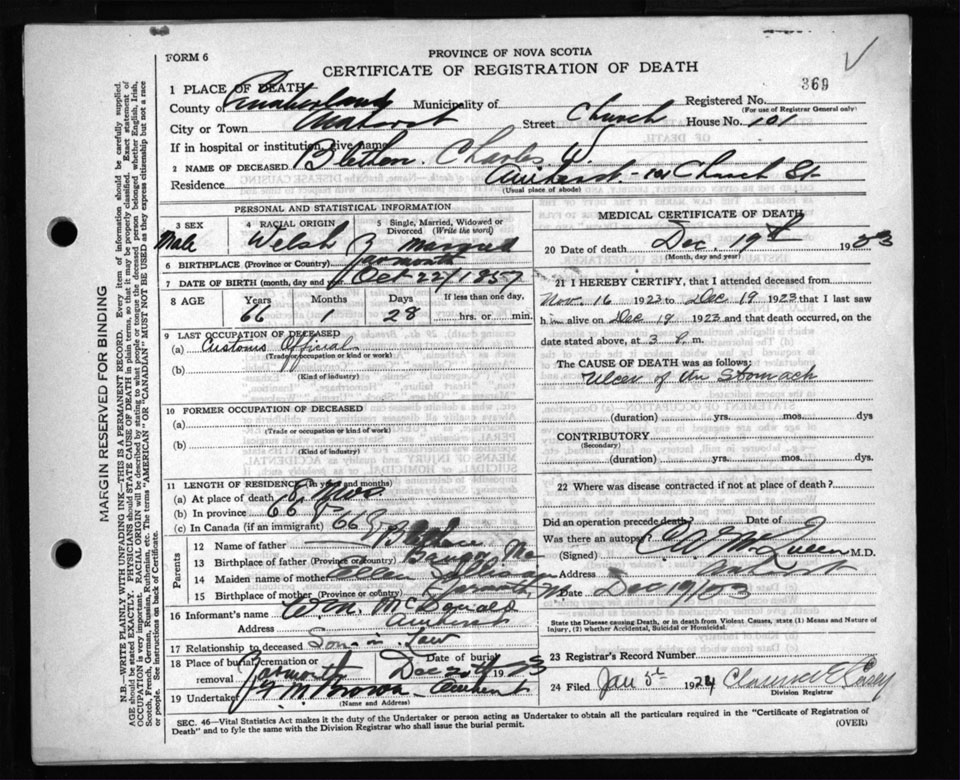 FORM 6
PROVINCE OF NOVA SCOTIA
CERTIFICATE OF REGISTRATION OF DEATH
369
1 PLACE OF DEATH
Registered No.
(For use of Registrar General only)
County of Cumberland Municipality of
City or Town Amherst Street Church House No. 101
If in hospital or institution, give name
2 NAME OF DECEASED Blethen. Charles W.
Residence Amherst - 101 Church St-
(Usual place of abode)
PERSONAL AND STATISTICAL INFORMATION
3 SEX Male
4 RACIAL ORIGIN Welsh
5 Single, Married, Widowed or Divorced (Write the word) Married
6 BIRTHPLACE (Province or Country) Yarmouth
7 DATE OF BIRTH (month, day and year) Oct 22/1857
8 AGE Years 66 Months 1 Days 28 If less than one day, hrs. or min.
9 LAST OCCUPATION OF DECEASED
(a) Customs Official
(Trade or occupation or kind of work)
(b)
(Kind of industry)
10 FORMER OCCUPATION OF DECEASED
(a)
(Trade or occupation or kind of work)
(b)
(Kind of industry)
11 LENGTH OF RESIDENCE (in years and months)
(a) At place of death
(b) In province 66
(c) In Canada (if an immigrant) 66
Parents
12 Name of father Blethen
13 Birthplace of father (Province or Country) Bangor Me
14 Maiden name of mother Ellen
15 Birthplace of mother (Province or Country) Yarmouth
16 Informant's name Wm. McDonald
Address Amherst
17 Relationship to deceased Son in Law
18 Place of burial, cremation or removal Yarmouth Date of burial Dec 20th 1923
19 Undertaker Brown - Amherst
(Name and Address)
MEDICAL CERTIFICATE OF DEATH
20 Date of death Dec. 19th 1923
(Month, day and year)
21 I HEREBY CERTIFY, that I attended deceased from
Nov. 16 1923 to Dec 19 1923 that I last saw
him alive on Dec 19 1923 and that death occurred, on the
date stated above, at 3 P. m.
The CAUSE OF DEATH was as follows:
Ulcer of the Stomach
(duration) yrs. mos. dys
CONTRIBUTORY
(Secondary)
(duration) yrs. mos. dys.
22 Where was disease contracted if not at place of death?
Did an operation precede death? Date of
Was there an autopsy?
(Signed) McQueen M.D.
Address Amherst
Date Dec 19/23
State the Disease causing Death, or in death from Violent Causes, state (1) Means and Nature of Injury, (2) whether Accidental, Suicidal or Homicidal.
23 Registrar's Record Number
24 Filed Jan 5th 1924 Clarence E.
Division Registrar
SEC. 46—Vital Statistics Act makes it the duty of the Undertaker or person acting as Undertaker to obtain all the particulars required in the "Certificate of Registration of
Death" and to fyle the same with the Division Registrar who shall issue the burial permit.
(OVER)
MARGIN RESERVED FOR BINDING
N.B.—WRITE PLAINLY WITH UNFADING INK—THIS IS A PERMANENT RECORD. Every item of information should be carefully supplied.
AGE should be stated EXACTLY. PHYSICIANS should STATE CAUSE OF DEATH in plain terms, so that it may be properly classified. Exact statement of
OCCUPATION is very important. RACIAL ORIGIN will be described by stating to what people or tongue the deceased person belonged whether English, Irish,
Scotch, French, German, Russian, Ruthenian, etc. The terms "AMERICAN" OR "CANADIAN" MUST NOT BE USED as they express citizenship but not a race
or people. See instructions on back of Certificate.